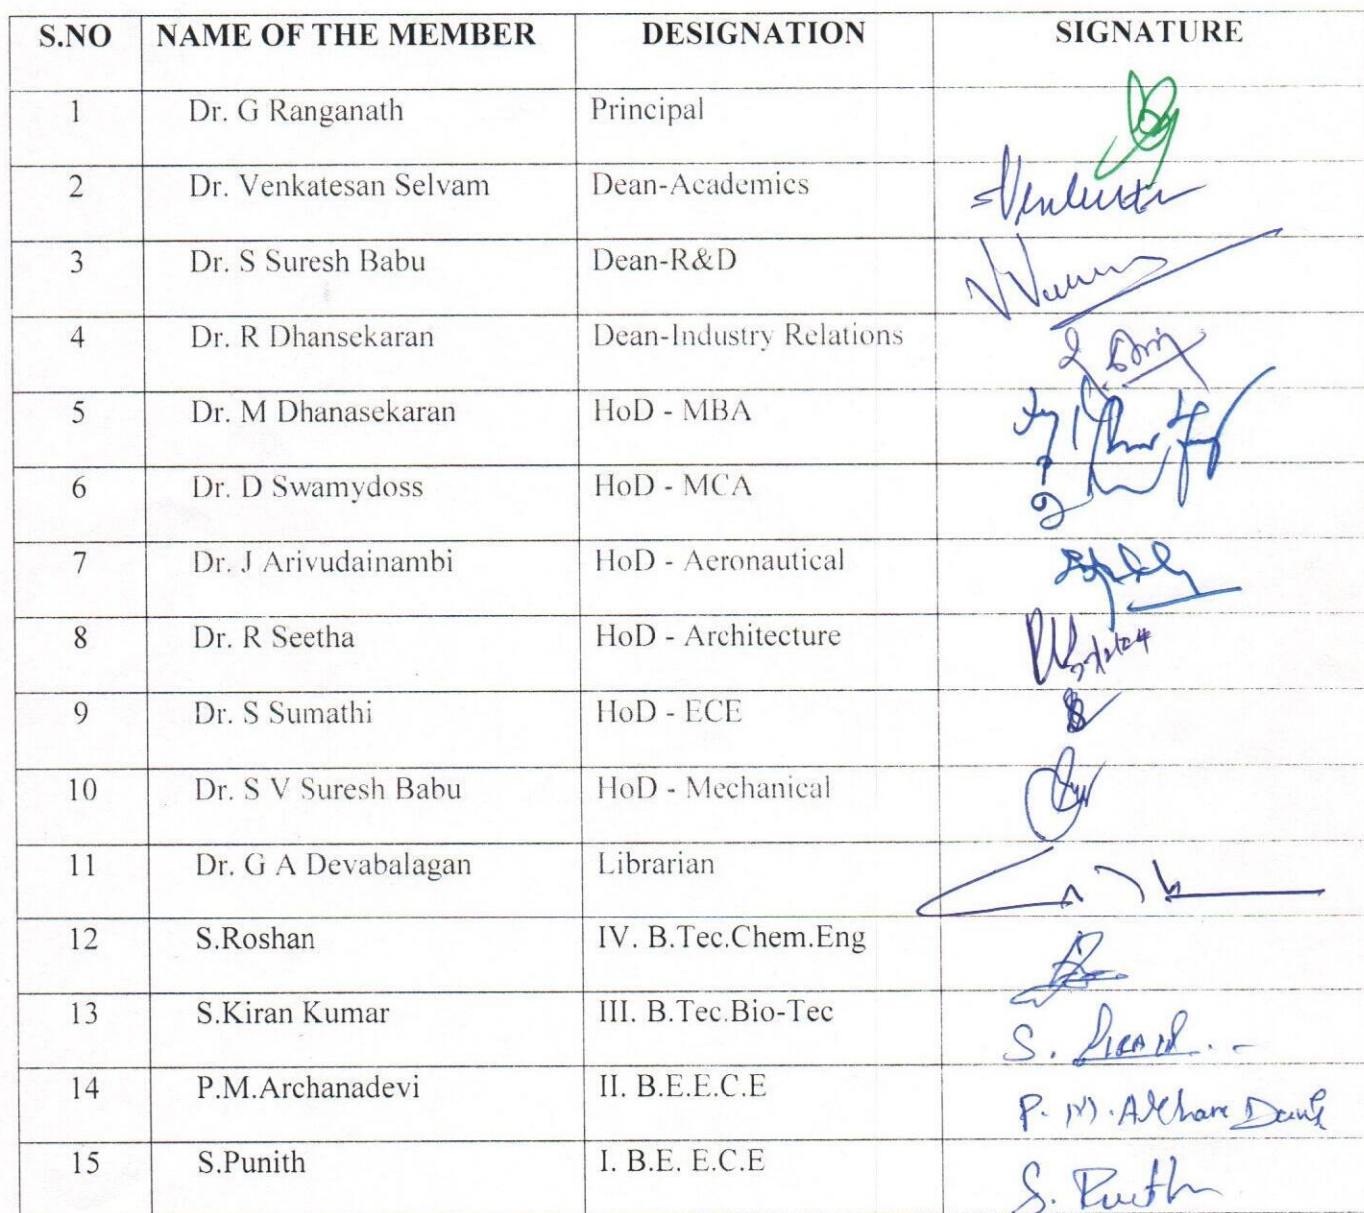 S.NO NAME OF THE MEMBER DESIGNATION SIGNATURE
1 Dr. G Ranganath Principal
2 Dr. Venkatesan Selvam Dean-Academics
3 Dr. S Suresh Babu Dean-R&D
4 Dr. R Dhansekaran Dean-Industry Relations
5 Dr. M Dhanasekaran HoD - MBA
6 Dr. D Swamydoss HoD - MCA
7 Dr. J Arivudainambi HoD - Aeronautical
8 Dr. R Seetha HoD - Architecture
9 Dr. S Sumathi HoD - ECE
10 Dr. S V Suresh Babu HoD - Mechanical
11 Dr. G A Devabalagan Librarian
12 S.Roshan IV. B.Tec.Chem.Eng
13 S.Kiran Kumar III. B.Tec.Bio-Tec S.
14 P.M.Archanadevi II. B.E.E.C.E P. M.
15 S.Punith I. B.E. E.C.E S.